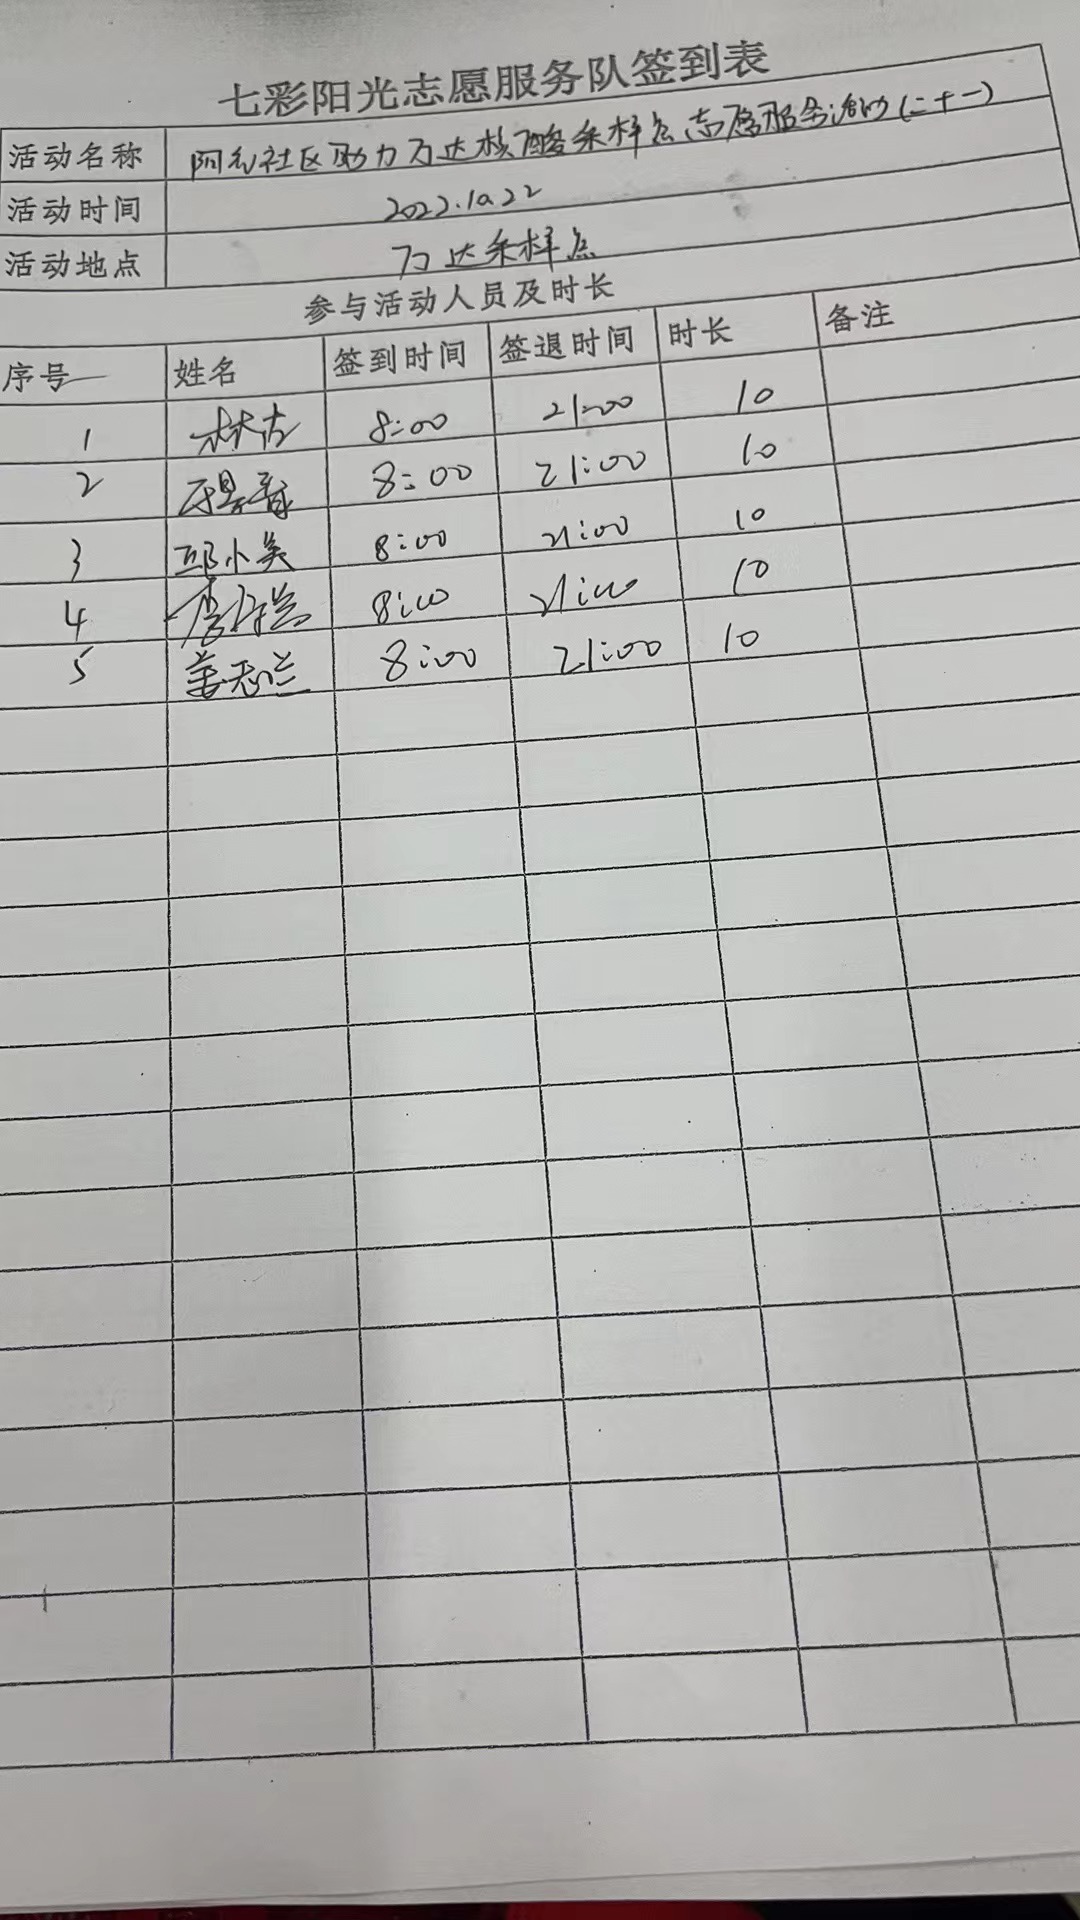 七彩阳光志愿服务队签到表
活动名称 社区助力万达核酸采样点志愿服务活动(二十一)
活动时间 2022.10.22
活动地点 万达采样点
参与活动人员及时长
序号 姓名 签到时间 签退时间 时长 备注
1 8:00 21:00 10
2 8:00 21:00 10
3 邱小英 8:00 21:00 10
4 8:00 21:00 10
5 8:00 21:00 10